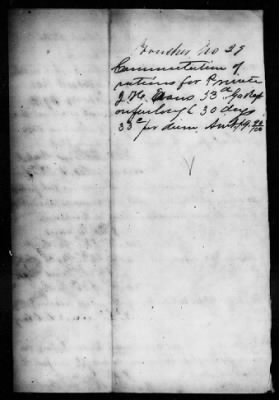 Voucher No 27
Commutation of
rations for Private
J. H. Evans 33d Ga Reg
on furlough 30 days
33c pr diem. Amt $9.90/100